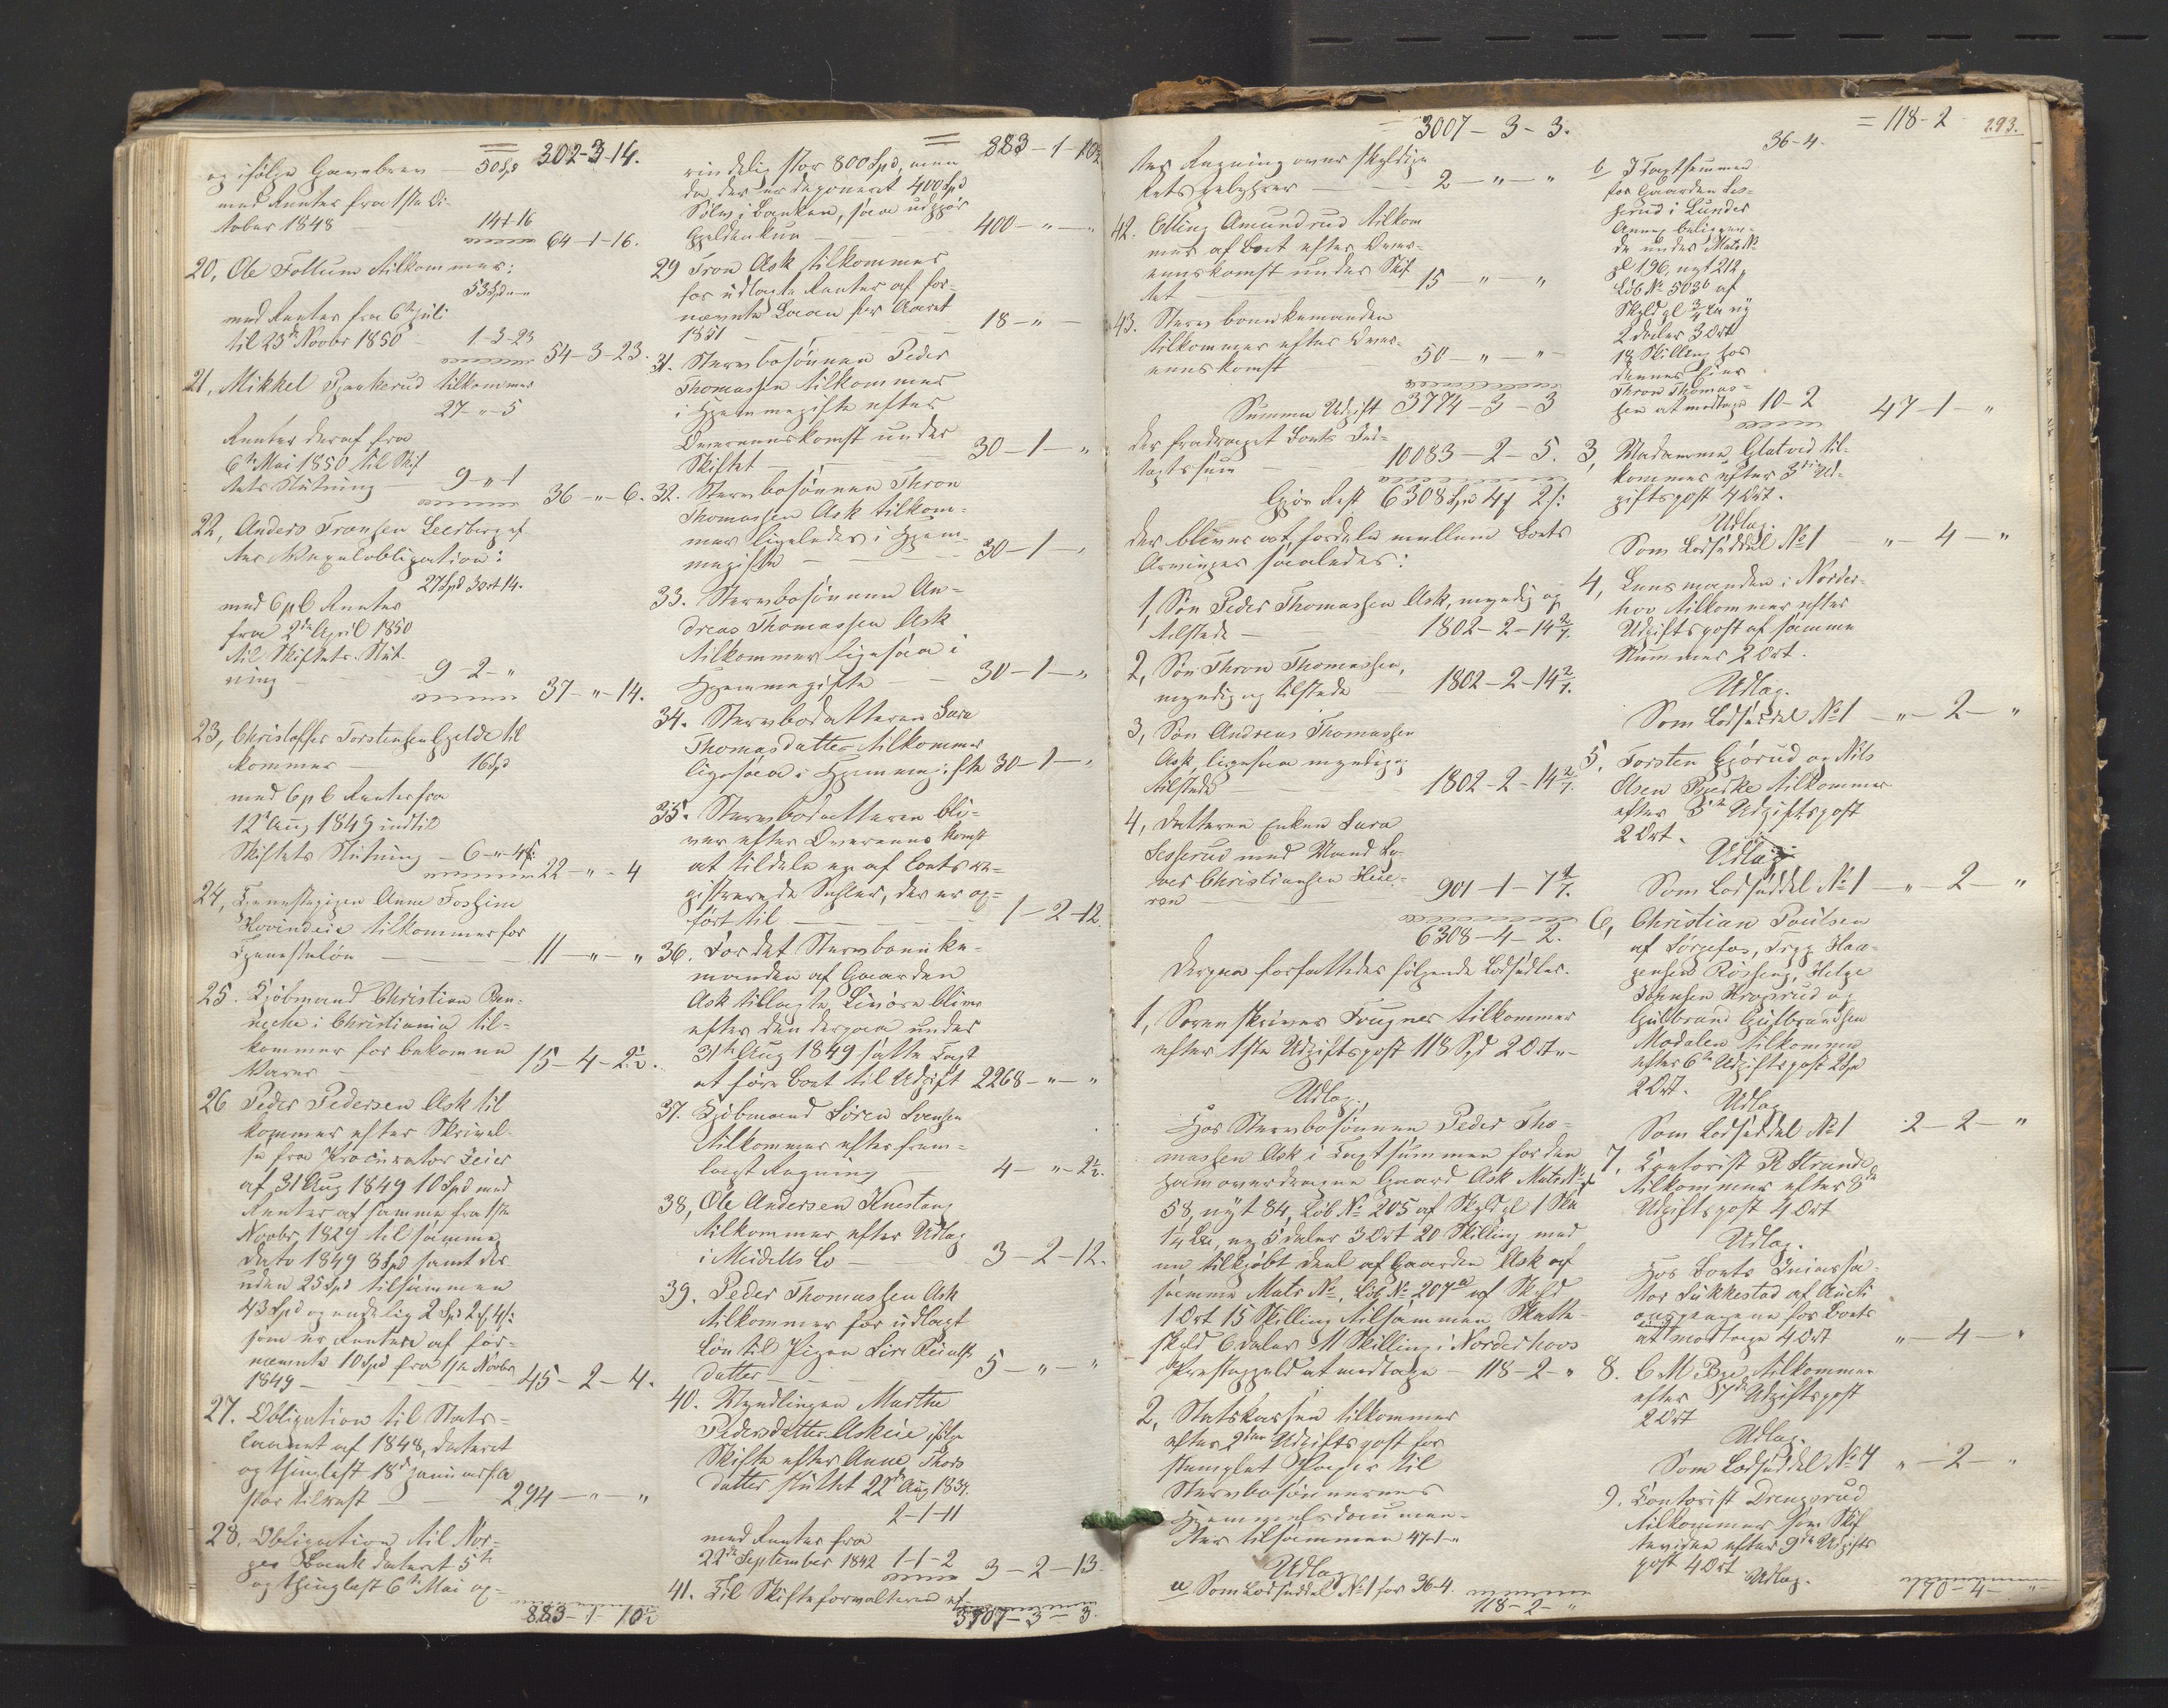 = 302-3-14.
og ifølge Gavebrev — 50 Spd
med Renter fra 1ste Oc-
tober 1848 — 14-1-16
64-1-16.
20, Ole Follum tilkommer:
53 Spd - " - "
med Renter fra 6te Juli
til 23de Novbr 1850 — 1-3-23
54-3-23.
21, Mikkel tilkommer
27-"-5
Renter deraf fra
6te Mai 1850 til Skif
tets Slutning — 9-"-1
36-"-6.
22, Anders Fransen Leerberg ef
ter Vexelobligation:
27 Spd 3 ort 14.
med 6 pC Renter
fra 2de April 1850
til Skiftets Slut-
ning — 9-2-"
37-"-14.
23, Christopher Torstensen Gjelde til
kommer — 16 Spd
med 6 pC Renter fra
12te Aug 1849 indtil
Skiftets Slutning — 6-"-4 s:
22-"-4
24, Tjenestepigen Anne
Hovindeie tilkommer for
Tjenesteløn — 11-"-"
25. Kjøbmand Christian Ben-
neche i Christiania til-
kommer for bekomne
Varer — 15-4-2½.
26 Peder Pedersen Ask til
kommer efter Skrivel-
se fra Procurator Feier
af 31 Aug 1849 10 Spd med
Renter af samme fra 1ste
Novbr 1829 til samme
Dato 1849 8 Spd samt des
uden 25 Spd tilsammen
43 Spd og endelig 2 Spd 2 ort 4 s:
som er Renten af for-
nævnte 10 Spd fra 1ste Novbr
1849 — 45-2-4.
27. Obligation til Stats-
laanet af 1848, dateret
og thinglæst 18de Januar s.A
stor tilrest — 294-"-"
28. Obligation til Nor-
ges Bank dateret 5te
og thinglæst 6te Mai op-
883-1-10½
= 883-1-10½
rindelig stor 800 Spd, men
da der er deponeret 400 Spd
Sølv i Banken, saa udgjør
Gjelden kun — 400-"-"
29 Tron Ask tilkommer
for udlagte Renter af for-
nævnte Laan for Aaret
1851 — 18-"-
31. Stervbosønnen Peder
Thomassen tilkommer
i Hjemmegifte efter
Overeenskomst under
Skiftet — 30-1-"
32. Stervbosønnen Thron
Thomassen Ask tilkom-
mer ligeledes i Hjem-
megifte — 30-1-"
33. Stervbosønnen An-
dreas Thomassen Ask
tilkommer ligesaa i
Hjemmegifte — 30-1-"
34. Stervbodatteren Sara
Thomasdatter tilkommer
ligesaa i Hjemmegifte 30-1-"
35. Stervbodatteren bli-
ver efter Overeenskomst
at tildele en af Boets re-
gistrerede Sæhler, der er op-
ført til — 1-2-12.
36. For det Stervboenke-
manden af Gaarden
Ask tillagte Livøre bliver
efter den derpaa under
31te Aug 1849 satte Taxt
at føre Boet til Udgift 2268-"-"
37. Kjøbmand Søren Svensen
tilkommer efter frem-
lagt Regning — 4-"-2½.
38, Ole Andersen Knestang
tilkommer efter Udlæg
i Meidells Bo — 3-2-12.
39. Peder Thomassen Ask
tilkommer for udlagt
Løn til Pigen Siri
datter — 5-"-"
40. Myndlingen Marthe
Pedersdatter Askeie ifølge
Skifte efter Anne Thors
datter sluttet 22de Aug 1834.
2-1-11
med Renter fra
22de September 1842 1-1-2
3-2-13.
41. Til Skifteforvalteren ef-
3007-3-3.
= 3007-3-3.
ter Regning over skyldige
Retsgebyhrer — 2-"-"
42. Elling Amundrud tilkom
mer af Boet efter Over-
eenskomst under Skif
tet — 15-"-"
43. Stervboenkemanden
tilkommer efter Over-
eenskomst — 50-"-"
Summa Udgift 3774-3-3
der fradraget Boets Ind-
tægtssum — 10083-2-5.
Gjør Rest 6308 Spd 4 ort 2 s:
der bliver at fordele mellem Boets
Arvinger saaledes:
1, Søn Peder Thomassen Ask, myndig og
tilstede — 1802-2-14 2/7.
2, Søn Thron Thomassen,
myndig og tilstede 1802-2-14 2/7.
3, Søn Andreas Thomassen
Ask, ligesaa myndig og
tilstede — 1802-2-14 2/7.
4, Datteren Enken Sara
Lesserud med Mand La-
vers Christiansen
901-1-7 1/7.
6308-4-2.
Derpaa forfattedes følgende Lodsedler.
1, Sorenskriver Frugner tilkommer
efter 1ste Udgiftspost 118 Spd 2 Ort "-
Udlæg.
Hos Stervbosønnen Peder Tho-
massen Ask i Taxtsummen for den
ham overdragne Gaard Ask Matr No gl
58, nyt 84, Løb No 205 af Skyld gl 1 Skd
1¼ Lü, ny 5 daler 3 Ort 20 Skilling med
en tilkjøbt Deel af Gaarden Ask af
samme Matr No, Løb No 207a af Skyld
1 Ort 15 Skilling tilsammen Skatte-
skyld 6 daler 11 Skilling i Norderhovs
Præstegjeld at modtage — 118-2-"
2, Statskassen tilkommer
efter 2den Udgiftspost for
stemplet Papir til
Stervbosønnernes
Hjemmelsdocumen-
ter tilsammen 47-1-"
Udlæg
a Som Lodseddel No 1 for 36-4.
118-2-"
= 118-2
293.
36-4.
b I Taxtsummen
for Gaarden Les-
serud i Lunder
Annex beliggen-
de under Matr No
gl 196, nyt 212,
Løb No 503b af
Skyld gl ¾ Lü ny
2 daler 3 Ort
18 Skilling hos
dennes Eier
Thron Thomas-
sen at modtage 10-2
47-1-"
3, Madamme Glatved til-
kommer efter 3die Ud-
giftspost 4 Ort.
Udlæg.
Som Lodseddel No 1 "-4-"
4, Lensmanden i Norder-
hov tilkommer efter
Udgiftspost af samme
Nummer 2 Ort.
Udlæg.
Som Lodseddel No 1 —"-2-"
5. Torsten Gjørud og Nils
Olsen tilkommer
efter 5te Udgiftspost
2 Ort.
Udlæg
Som Lodseddel No 1 —"-2-"
6, Christian Poulsen
af Sørgefos, Tryg Haa-
gensen Røsseng, Helge
Johnsen og
Gulbrand Gulbrandsen
Modalen tilkommer
efter 6te Udgiftspost 2 Spd
2 Ort.
Udlæg
Som Lodseddel No 1 2-2-"
7. Contorist P. Strande
tilkommer efter 8de
Udgiftspost 4 Ort
Udlæg.
Hos Boets Incassa-
tor Lükkestad af Aucti
onspengene for Boets
at modtage 4 Ort "-4-"
8. C. M. Bye tilkommer
efter 7de Udgiftspost
2 Ort
Udlæg.
Som Lodseddel No 7 "-2-"
9. Contorist Drengsrud
tilkommer som Skif
tevidne efter 9de Udgifts
post 4 Ort
Udlæg.